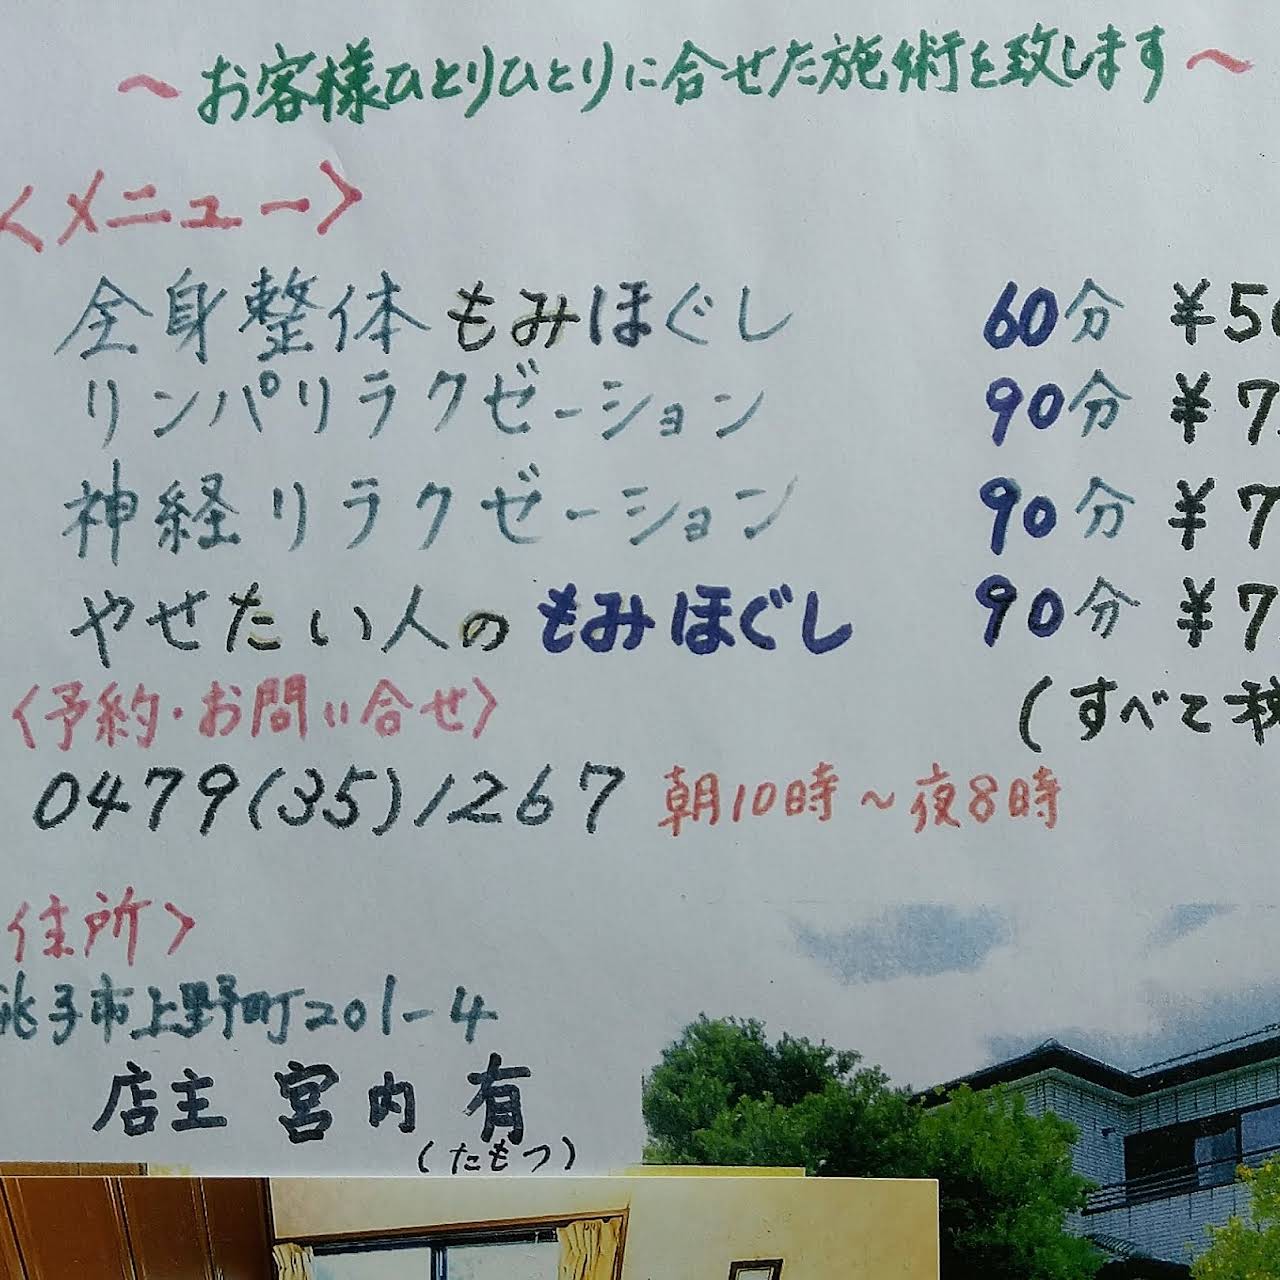 ～お客様ひとりひとりに合せた施術を致します～
〈メニュー〉
全身整体もみほぐし 60分 ¥50
リンパリラクゼーション 90分 ¥7
神経リラクゼーション 90分 ¥7
やせたい人のもみほぐし 90分 ¥7
(すべて税
〈予約・お問い合せ〉
0479(35)1267 朝10時～夜8時
住所〉
銚子市上野町201-4
店主 宮内 有
(たもつ)